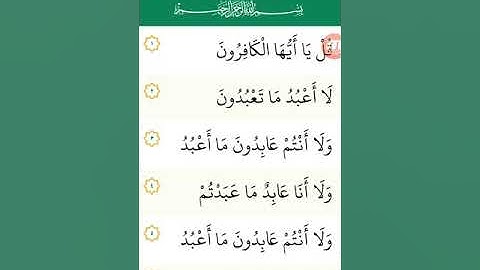 بِسْمِ اللَّهِ الرَّحْمَٰنِ الرَّحِيمِ
قُلْ يَا أَيُّهَا الْكَافِرُونَ ١
لَا أَعْبُدُ مَا تَعْبُدُونَ ٢
وَلَا أَنْتُمْ عَابِدُونَ مَا أَعْبُدُ ٣
وَلَا أَنَا عَابِدٌ مَا عَبَدْتُمْ ٤
وَلَا أَنْتُمْ عَابِدُونَ مَا أَعْبُدُ ٥